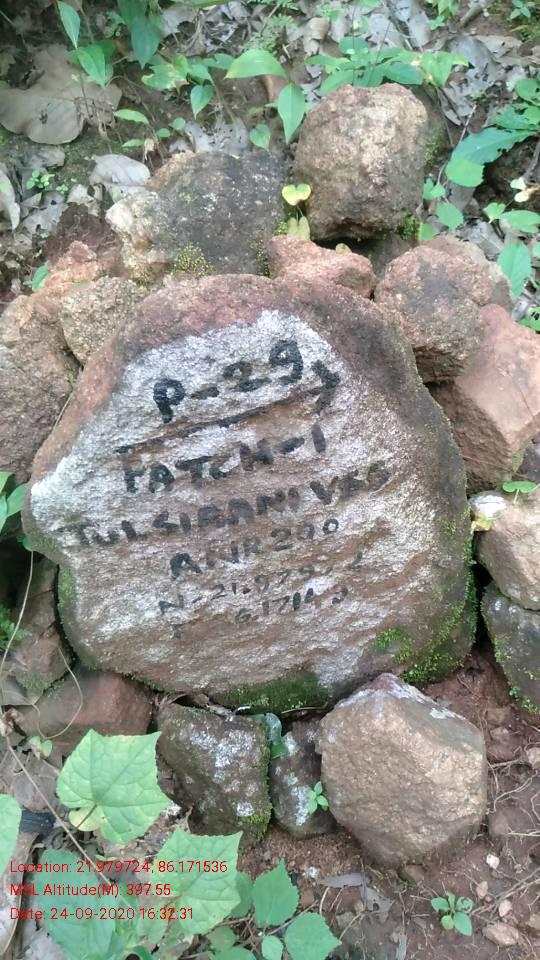 P-29
PATCH-1
TULSIBANI VSS
ANR 200
Location: 21.979724, 86.171536
MSL Altitude(M): 397.55
Date: 24-09-2020 16:32:31